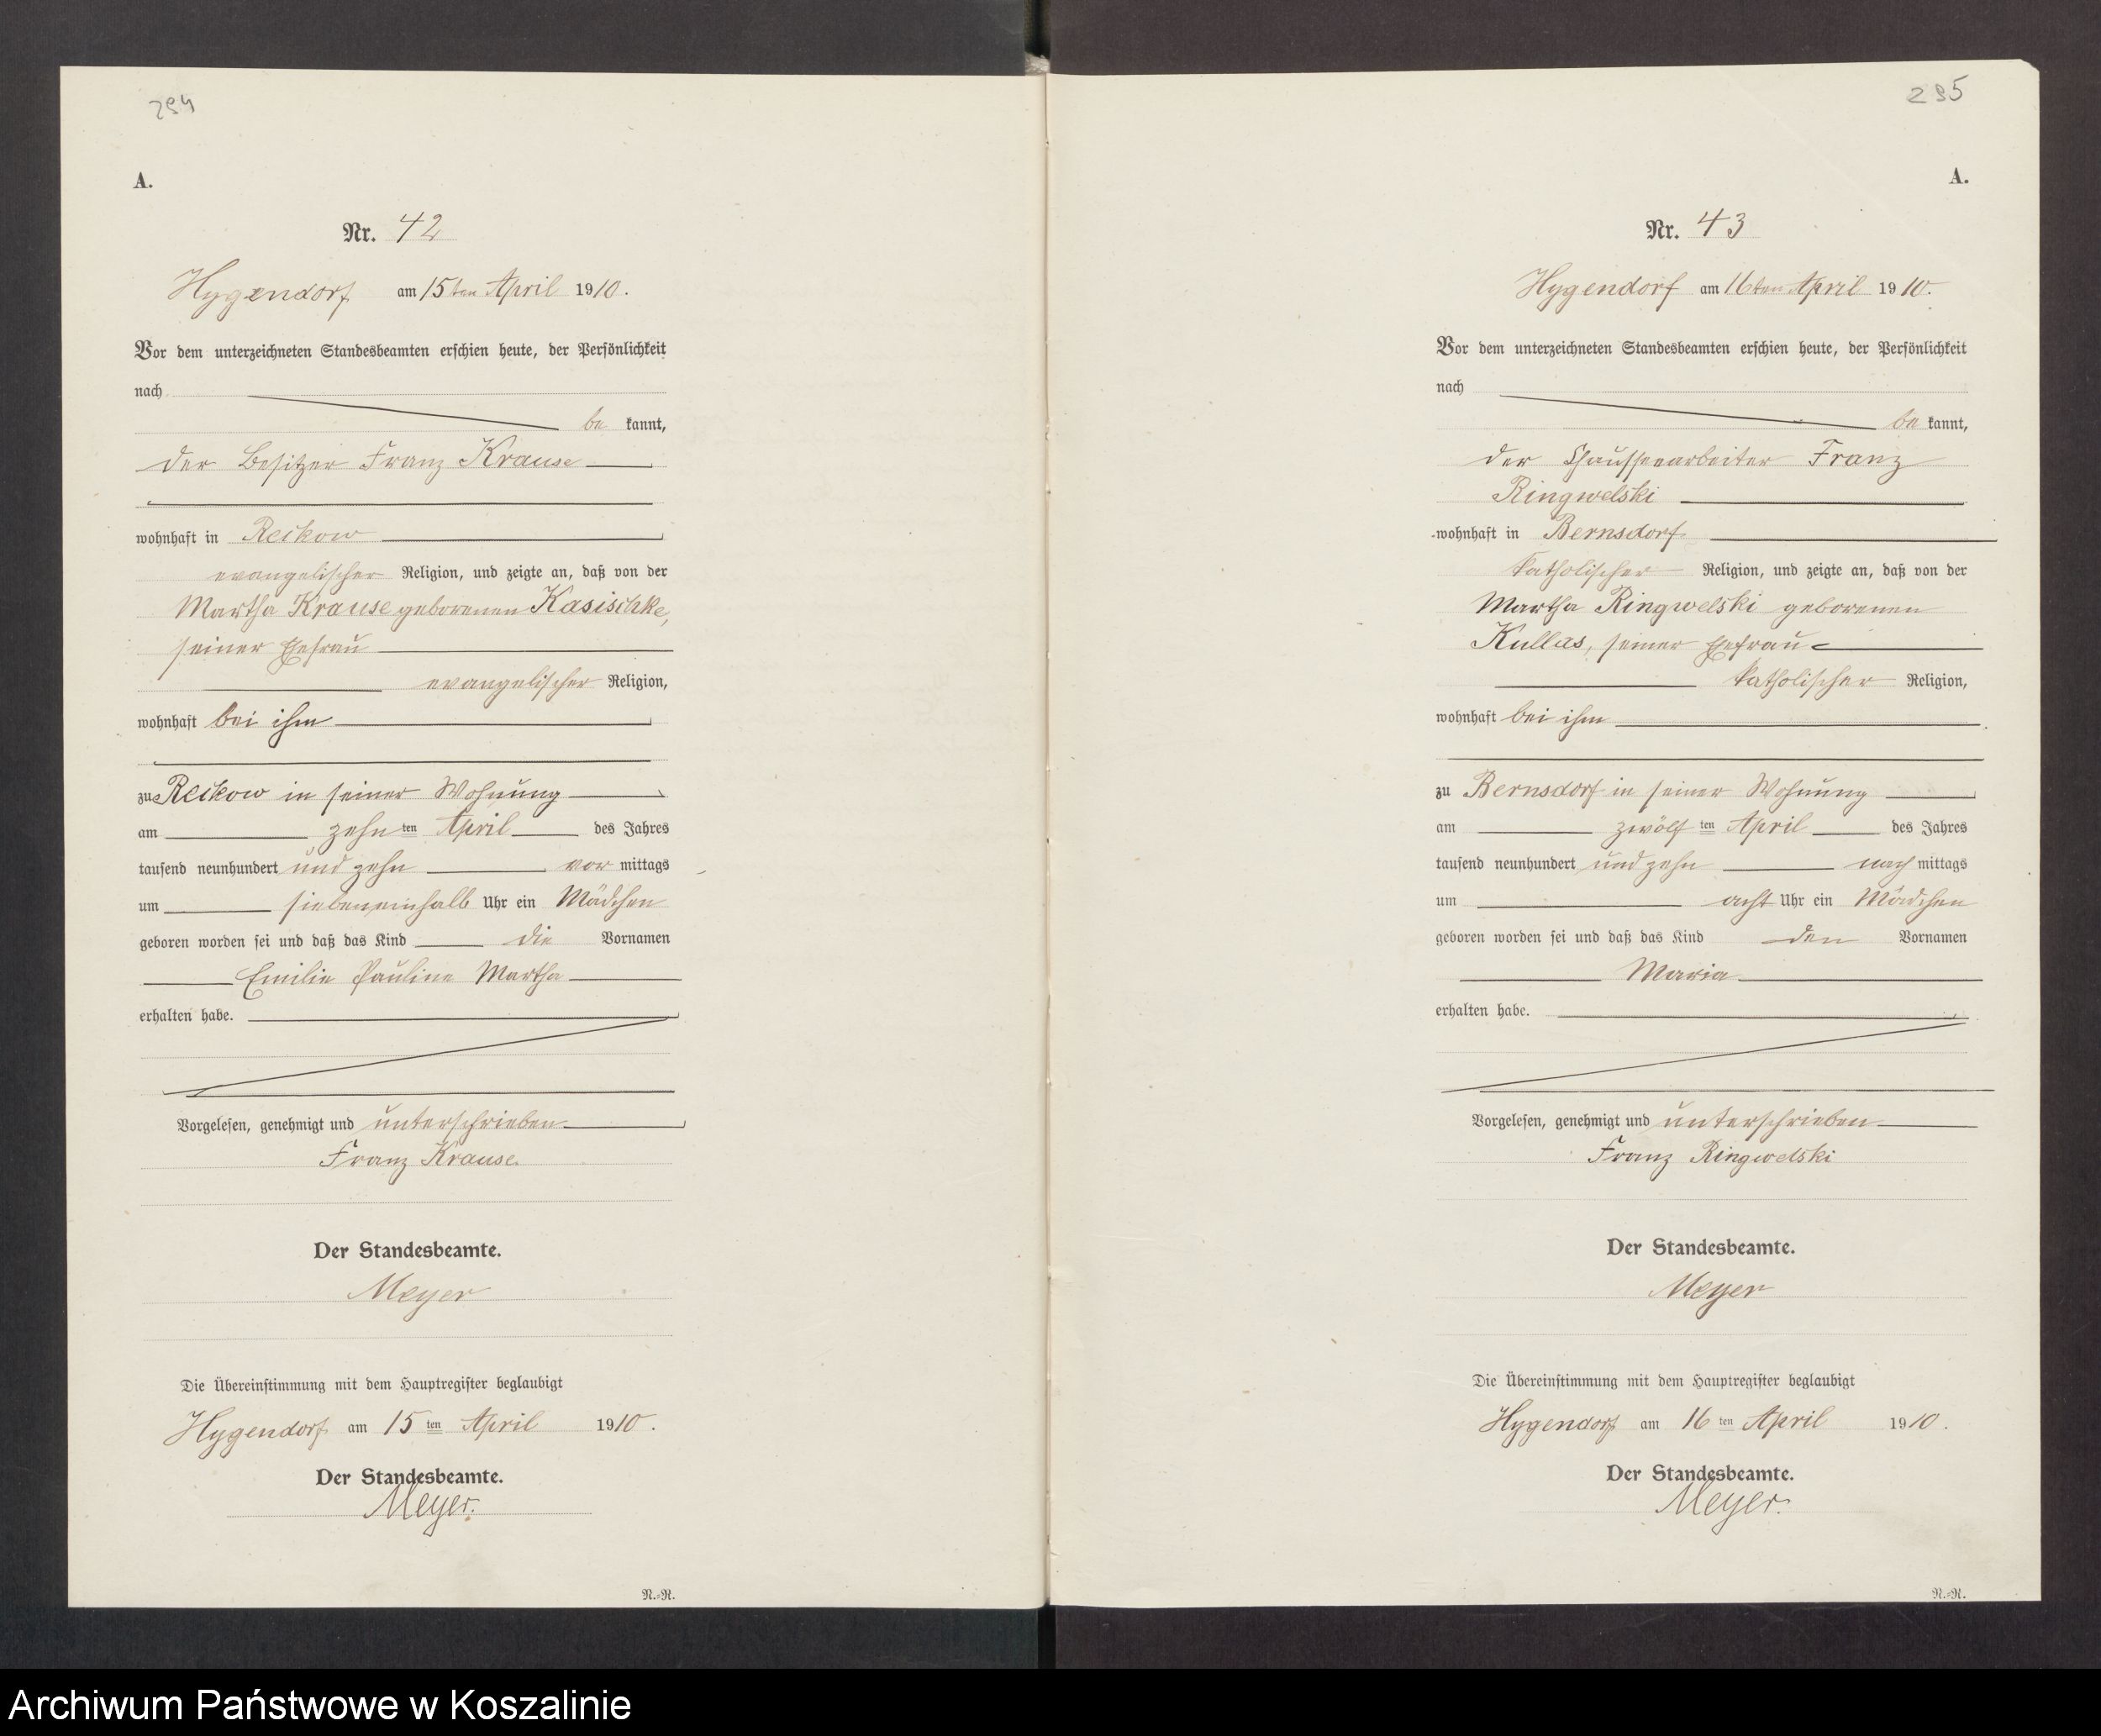 294
A.
Nr. 42
Hygendorf am 15ten April 1910.
Vor dem unterzeichneten Standesbeamten erschien heute, der Persönlichkeit
nach
be kannt,
der Besitzer Franz Krause
wohnhaft in Reckow
evangelischer Religion, und zeigte an, daß von der
Martha Krause geborenen Kasischke,
seiner Ehefrau
evangelischer Religion,
wohnhaft bei ihm
zu Reckow in seiner Wohnung
am zehn ten April des Jahres
tausend neunhundert und zehn vor mittags
um siebeneinhalb Uhr ein Mädchen
geboren worden sei und daß das Kind die Vornamen
Emilie Pauline Martha
erhalten habe.
Vorgelesen, genehmigt und unterschrieben
Franz Krause
Der Standesbeamte.
Meyer
Die Übereinstimmung mit dem Hauptregister beglaubigt
Hygendorf am 15 ten April 1910.
Der Standesbeamte.
Meyer.
N.=N.
295
A.
Nr. 43
Hygendorf am 16ten April 1910.
Vor dem unterzeichneten Standesbeamten erschien heute, der Persönlichkeit
nach
be kannt,
der Chausseearbeiter Franz
Ringwelski
wohnhaft in Bernsdorf
katholischer Religion, und zeigte an, daß von der
Martha Ringwelski geborenen
Kullas, seiner Ehefrau
katholischer Religion,
wohnhaft bei ihm
zu Bernsdorf in seiner Wohnung
am zwölf ten April des Jahres
tausend neunhundert und zehn nach mittags
um acht Uhr ein Mädchen
geboren worden sei und daß das Kind den Vornamen
Maria
erhalten habe.
Vorgelesen, genehmigt und unterschrieben
Franz Ringwelski
Der Standesbeamte.
Meyer
Die Übereinstimmung mit dem Hauptregister beglaubigt
Hygendorf am 16 ten April 1910.
Der Standesbeamte.
Meyer.
N.=N.
Archiwum Państwowe w Koszalinie